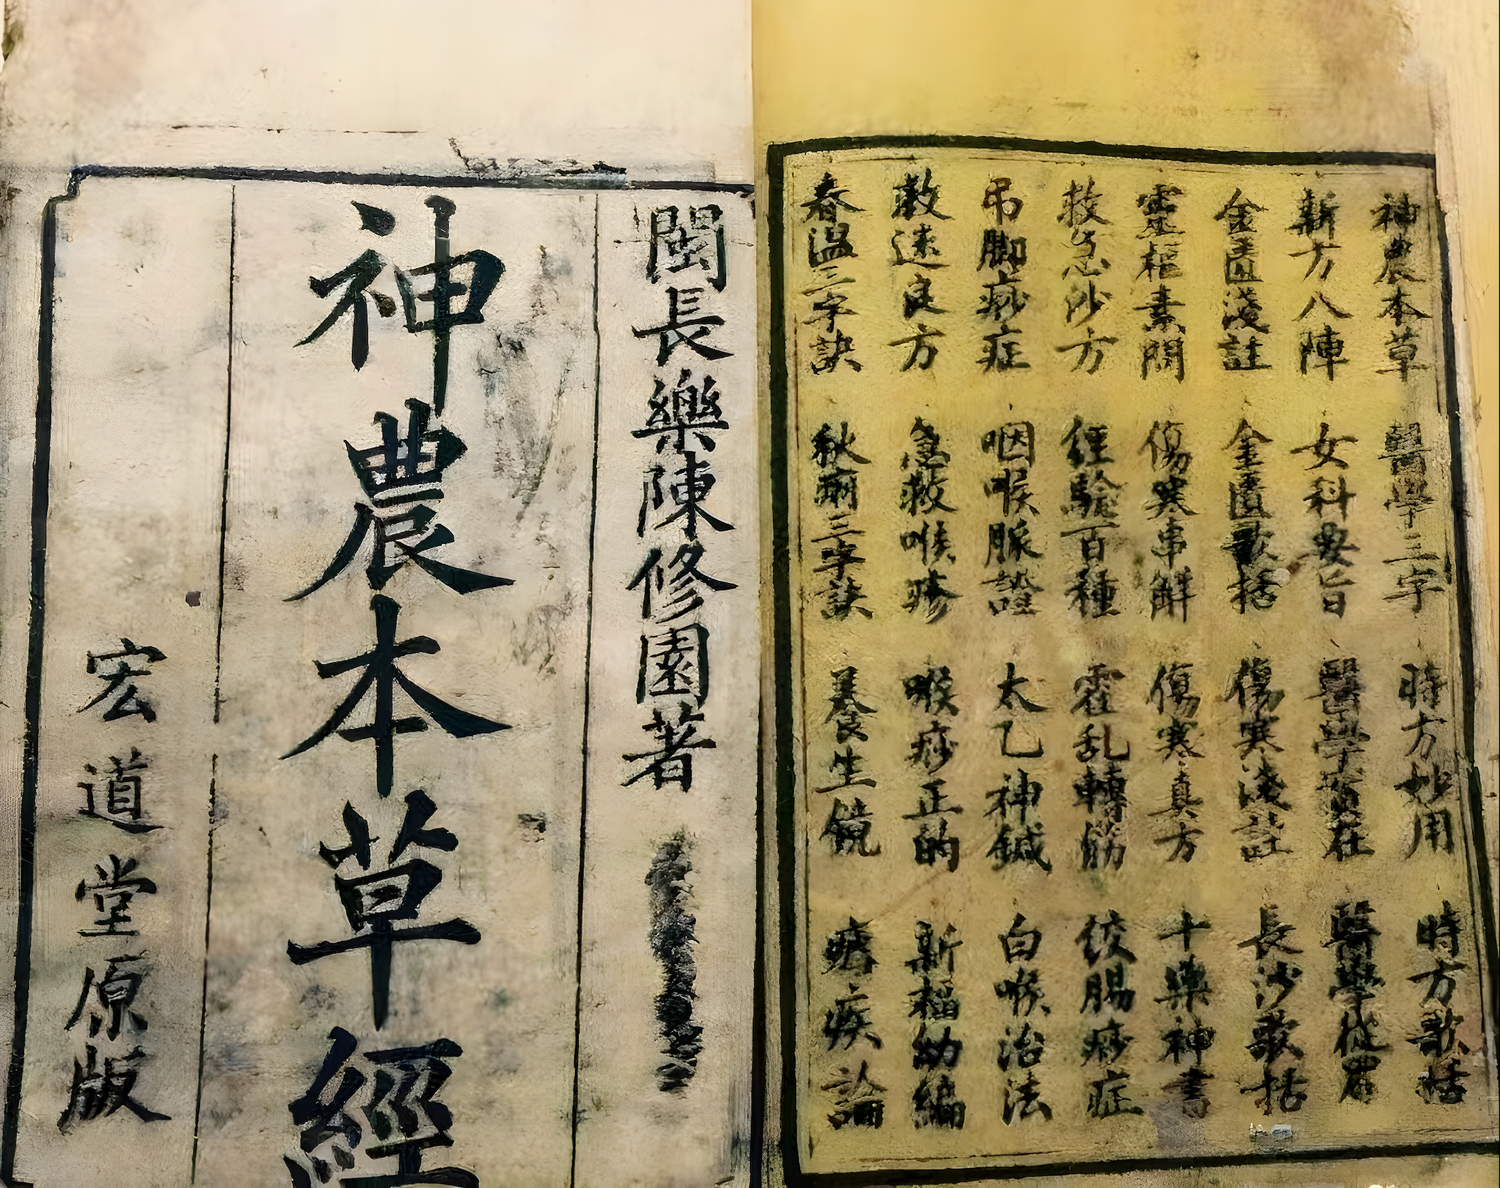 神農本草 醫學三字 時方妙用 時方歌括
新方八陣 女科要旨 醫學實在 醫學從眾
金匱淺註 金匱歌括 傷寒淺註 長沙歌括
靈樞素問 傷寒串解 傷寒真方 十藥神書
救急沙方 經驗百種 霍乱轉筋 絞腸痧症
吊脚痧症 咽喉脈證 太乙神鍼 白喉治法
救速良方 急救喉疹 喉痧正的 新福幼編
春温三字訣 秋痢三字訣 養生鏡 瘧疾論
閩長樂陳修園著
神農本草經
宏道堂原版